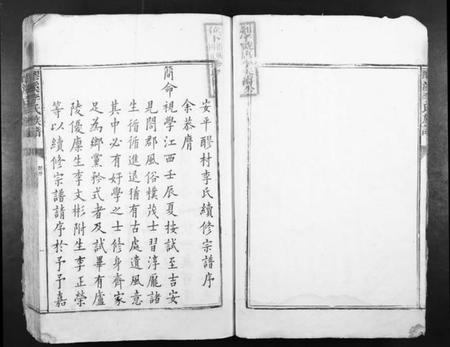 安平醪村李氏續修宗譜序
余恭膺
簡命視學江西壬辰夏按試至吉安
見閤郡風俗樸茂士習淳龐諸
生循循進退猶有古處遺風意
其中必有好學之士修身齊家
足為鄉黨矜式者及試畢有廬
陵優廩生李文彬附生李正榮
等以續修宗譜請序於予予嘉